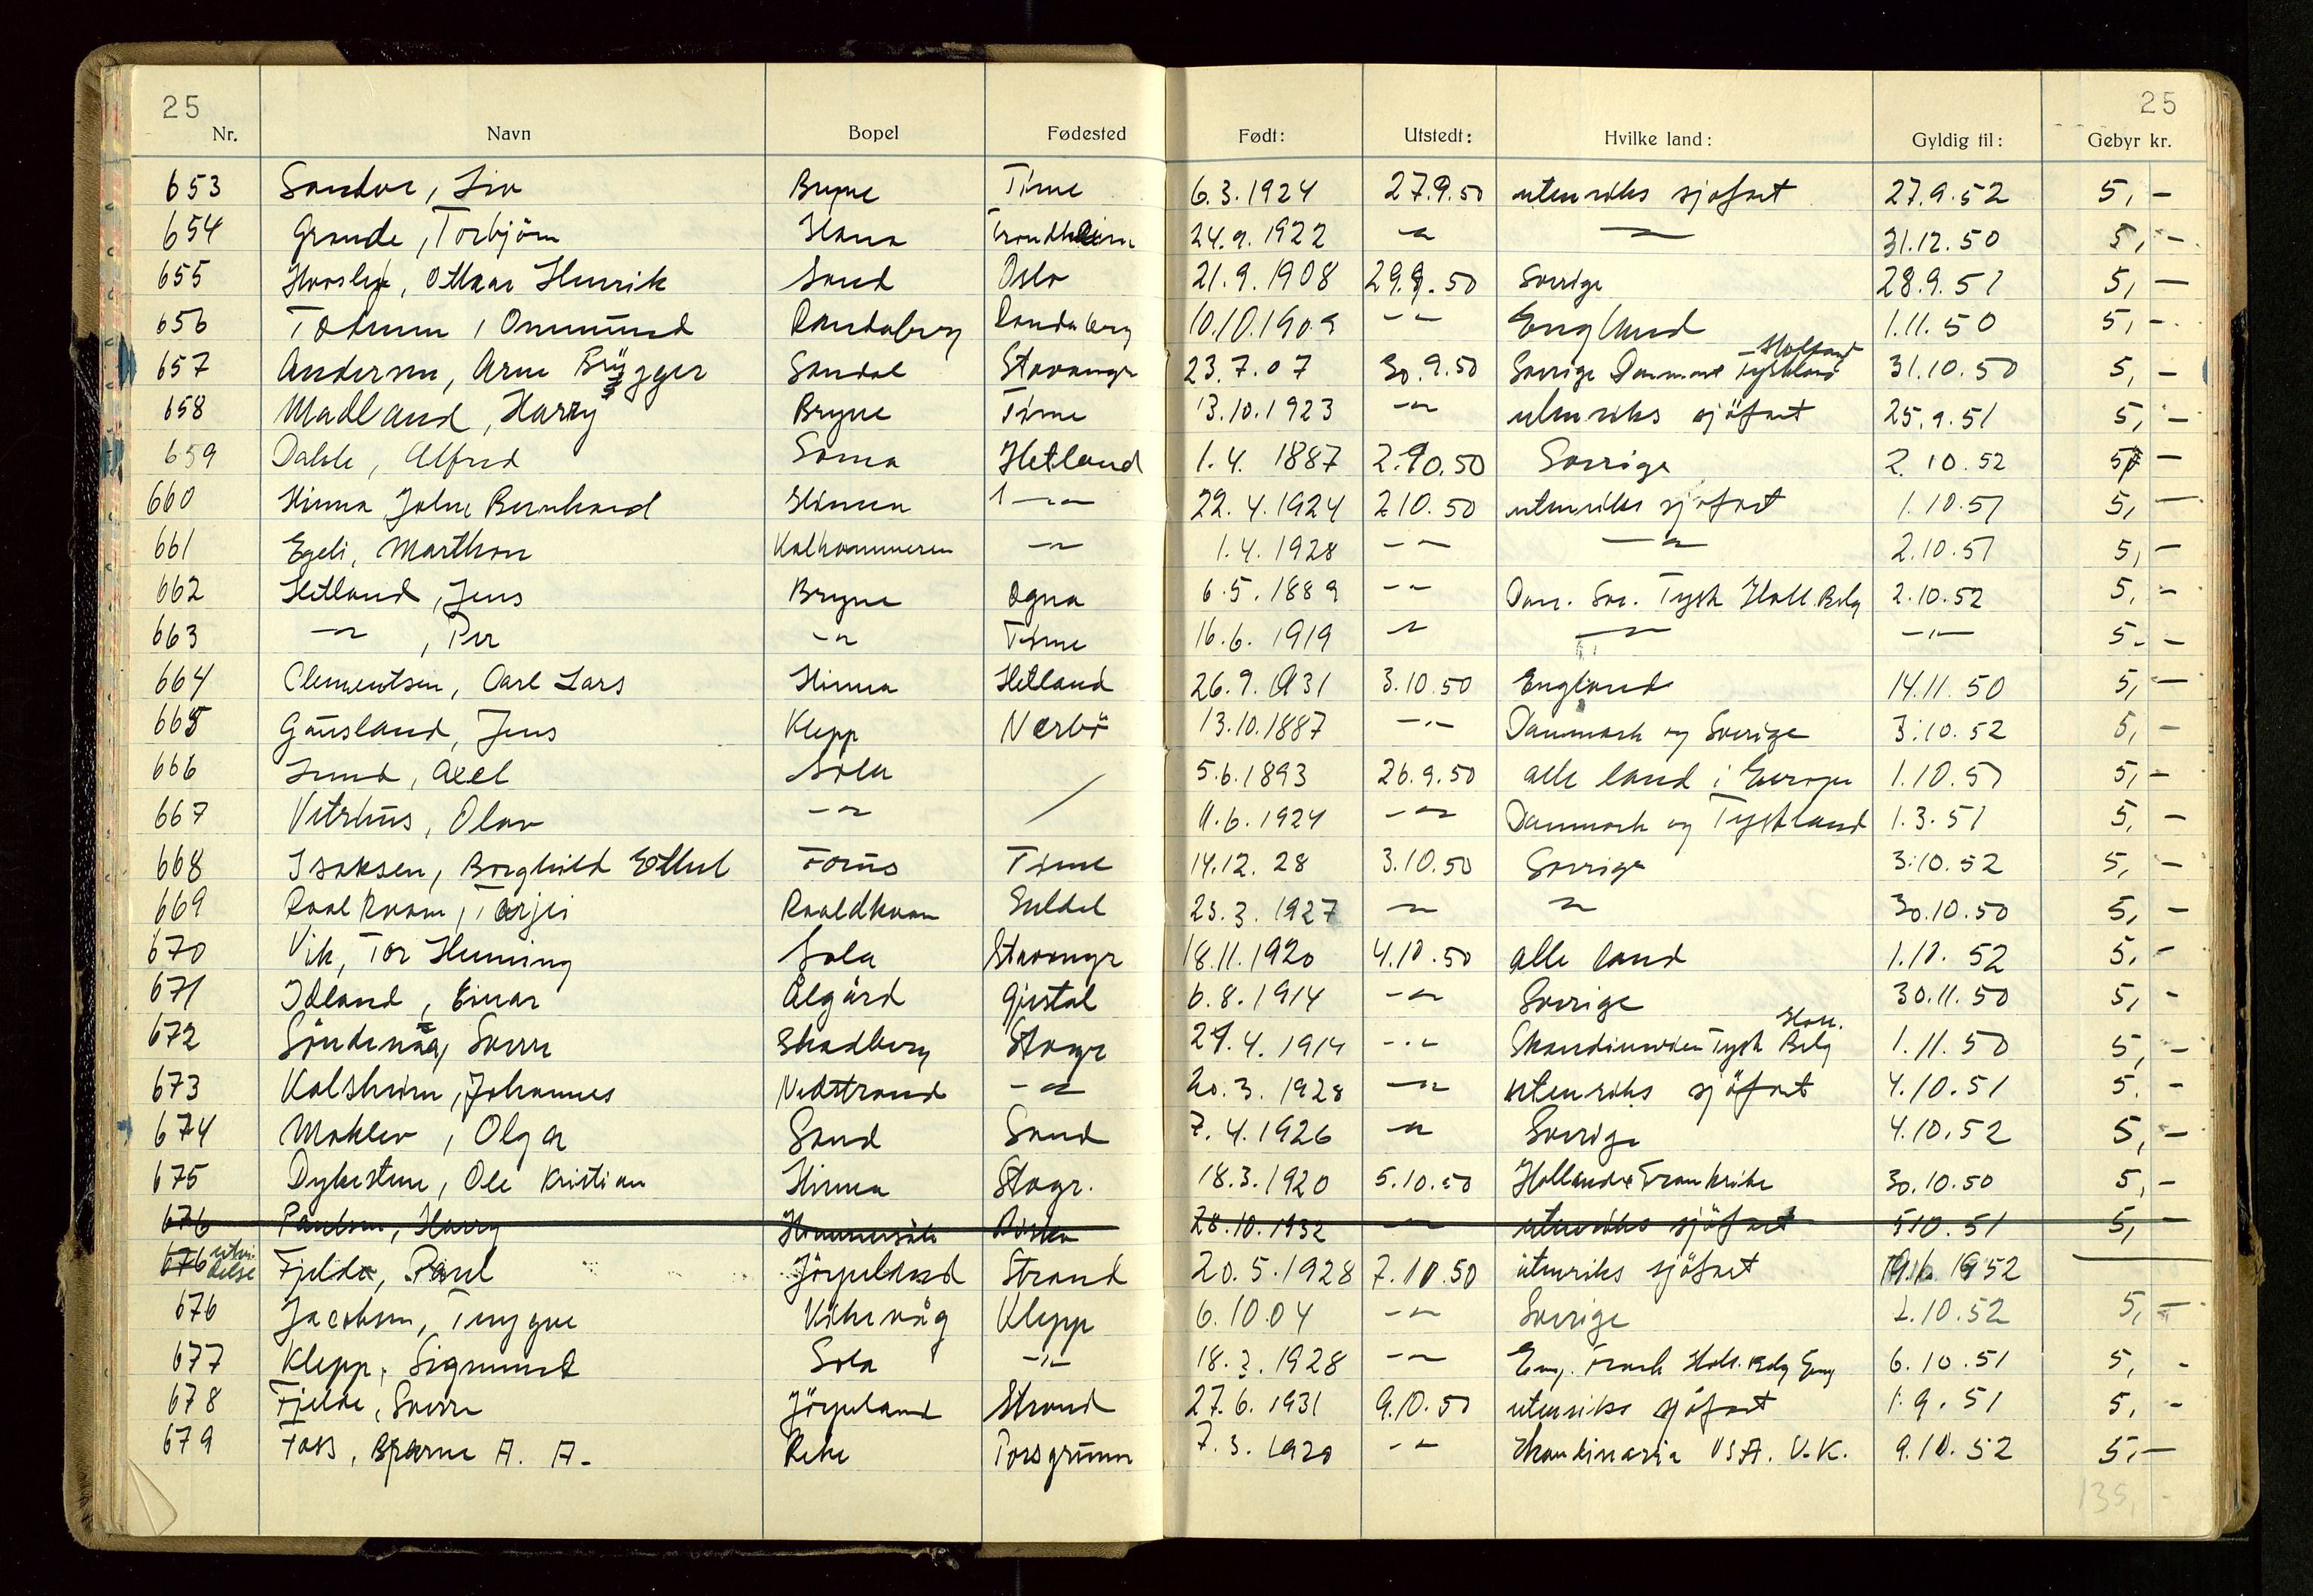 25 25
Nr. Navn Bopel Fødested Født: Utstedt: Hvilke land: Gyldig til: Gebyr kr.
653 Sandve, Liv Bryne Time 6.3.1924 27.9.50 utenriks sjøfart 27.9.52 5,-
654 Grande, Torbjörn Hana Trondheim 24.9.1922 -"- -"- 31.12.50 5,-
655 Ottkar Henrik Sand Oslo 21.9.1908 29.9.50 Sverige 28.9.51 5,-
656 Randaberg Randaberg 10.10.1909 -"- England 1.11.50 5,-
657 Andersen, Arne Brygger Sandal Stavanger 23.7.07 30.9.50 Sverige Danmark Tyskland - Holland 31.10.50 5,-
658 Madland, Harry Bryne Time 13.10.1923 -"- utenriks sjöfart 25.9.51 5,-
659 Dahle, Alfred Soma Hetland 1.4.1887 2.10.50 Sverige 2.10.52 5,-
660 Hinna, John Bernhard Hinna -"- 22.4.1924 2.10.50 utenriks sjøfart 1.10.51 5,-
661 Egeli, Marthon Kalhammeren -"- 1.4.1928 -"- -"- 2.10.51 5,-
662 Hetland, Jens Bryne Ogna 6.5.1889 -"- Dan. Sve. Tysk Holl. Belg 2.10.52 5,-
663 -"-, Per -"- Time 16.6.1919 -"- -"- -"- 5,-
664 Clementsen, Carl Lars Hinna Hetland 26.9.1931 3.10.50 England 14.11.50 5,-
665 Gausland, Jens Klepp Nærbö 13.10.1887 -"- Danmark og Sverige 3.10.52 5,-
666 Lund, Axel Sola 5.6.1893 26.9.50 alle land i Europa 1.10.51 5,-
667 Vitrhus, Olav -"- / 11.6.1924 -"- Danmark og Tyskland 1.3.51 5,-
668 Isaksen, Borghild Ethel Forus Time 14.12.28 3.10.50 Sverige 3.10.52 5,-
669 Roalkvam, Terjei Roaldkvam Suldal 23.3.1927 -"- -"- 30.10.50 5,-
670 Vik, Tor Henning Sola Stavanger 18.11.1920 4.10.50 alle land 1.10.52 5,-
671 Idland, Einar Ålgård Gjestal 6.8.1914 -"- Sverige 30.11.50 5,-
672 Söndenaa, Sverre Skadberg Stvgr 24.4.1914 -"- Skandinavien Tysk Holl. Belg 1.11.50 5,-
673 Kalsheim, Johannes Nedstrand -"- 20.3.1928 -"- utenriks sjöfart 4.10.51 5,-
674 Moklev, Olga Sand Sand 7.4.1926 -"- Sverige 4.10.52 5,-
675 Dyksteen, Ole Kristian Hinna Stvgr. 18.3.1920 5.10.50 Holland & Frankrike 30.10.50 5,-
676 Paulsen, Harry 28.10.1932 -"- utenriks sjöfart 5.10.51 5,-
676 Fjelde, Paul Jörpeland Strand 20.5.1928 7.10.50 utenriks sjöfart 1952
676 Jacobsen, Trygve Vikevåg Klepp 6.10.04 -"- Sverige 2.10.52 5,-
677 Klepp, Sigmund Sola -"- 18.3.1928 -"- Eng. Frank Holl. Belg 6.10.51 5,-
678 Fjelde, Sverre Jörpeland Strand 27.6.1931 9.10.50 utenriks sjöfart 1.9.51 5,-
679 Foss, Bjarne A. A. Reke Porsgrunn 7.3.1920 -"- Skandinavia USA. U.K. 9.10.52 5,-
135,-